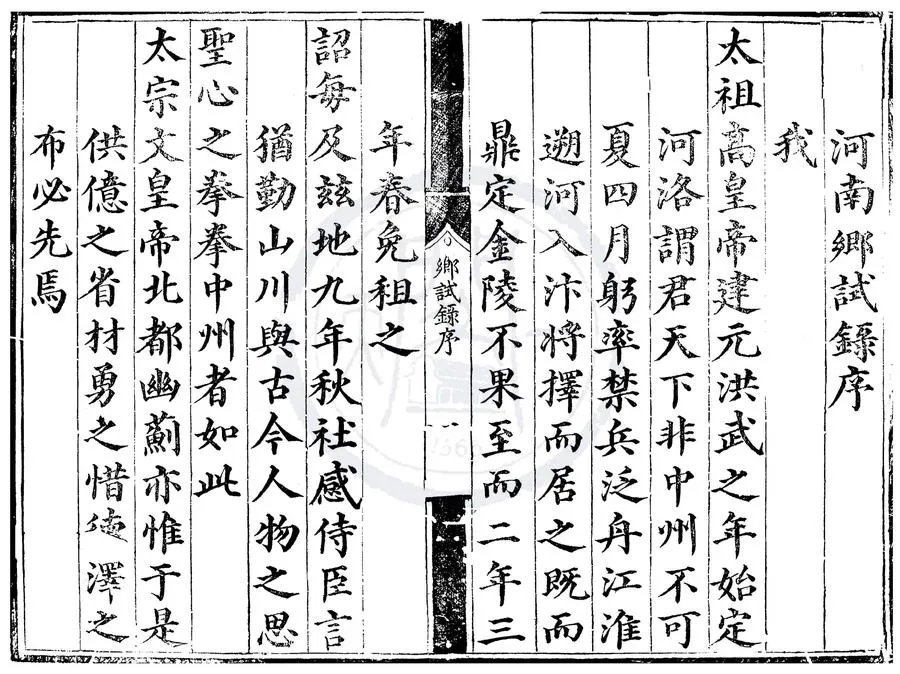 河南鄉試錄序
我
太祖高皇帝建元洪武之年始定
河洛謂君天下非中州不可
夏四月躬率禁兵泛舟江淮
遡河入汴將擇而居之既而
鼎定金陵不果至而二年三
鄉試錄序
一
年春免租之
詔每及茲地九年秋社感侍臣言
猶勤山川與古今人物之思
聖心之拳拳中州者如此
太宗文皇帝北都幽薊亦惟于是
供億之省材勇之惜德澤之
布必先焉